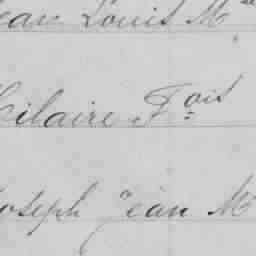 ean Louis M
Hilaire Fois
Joseph Jean M